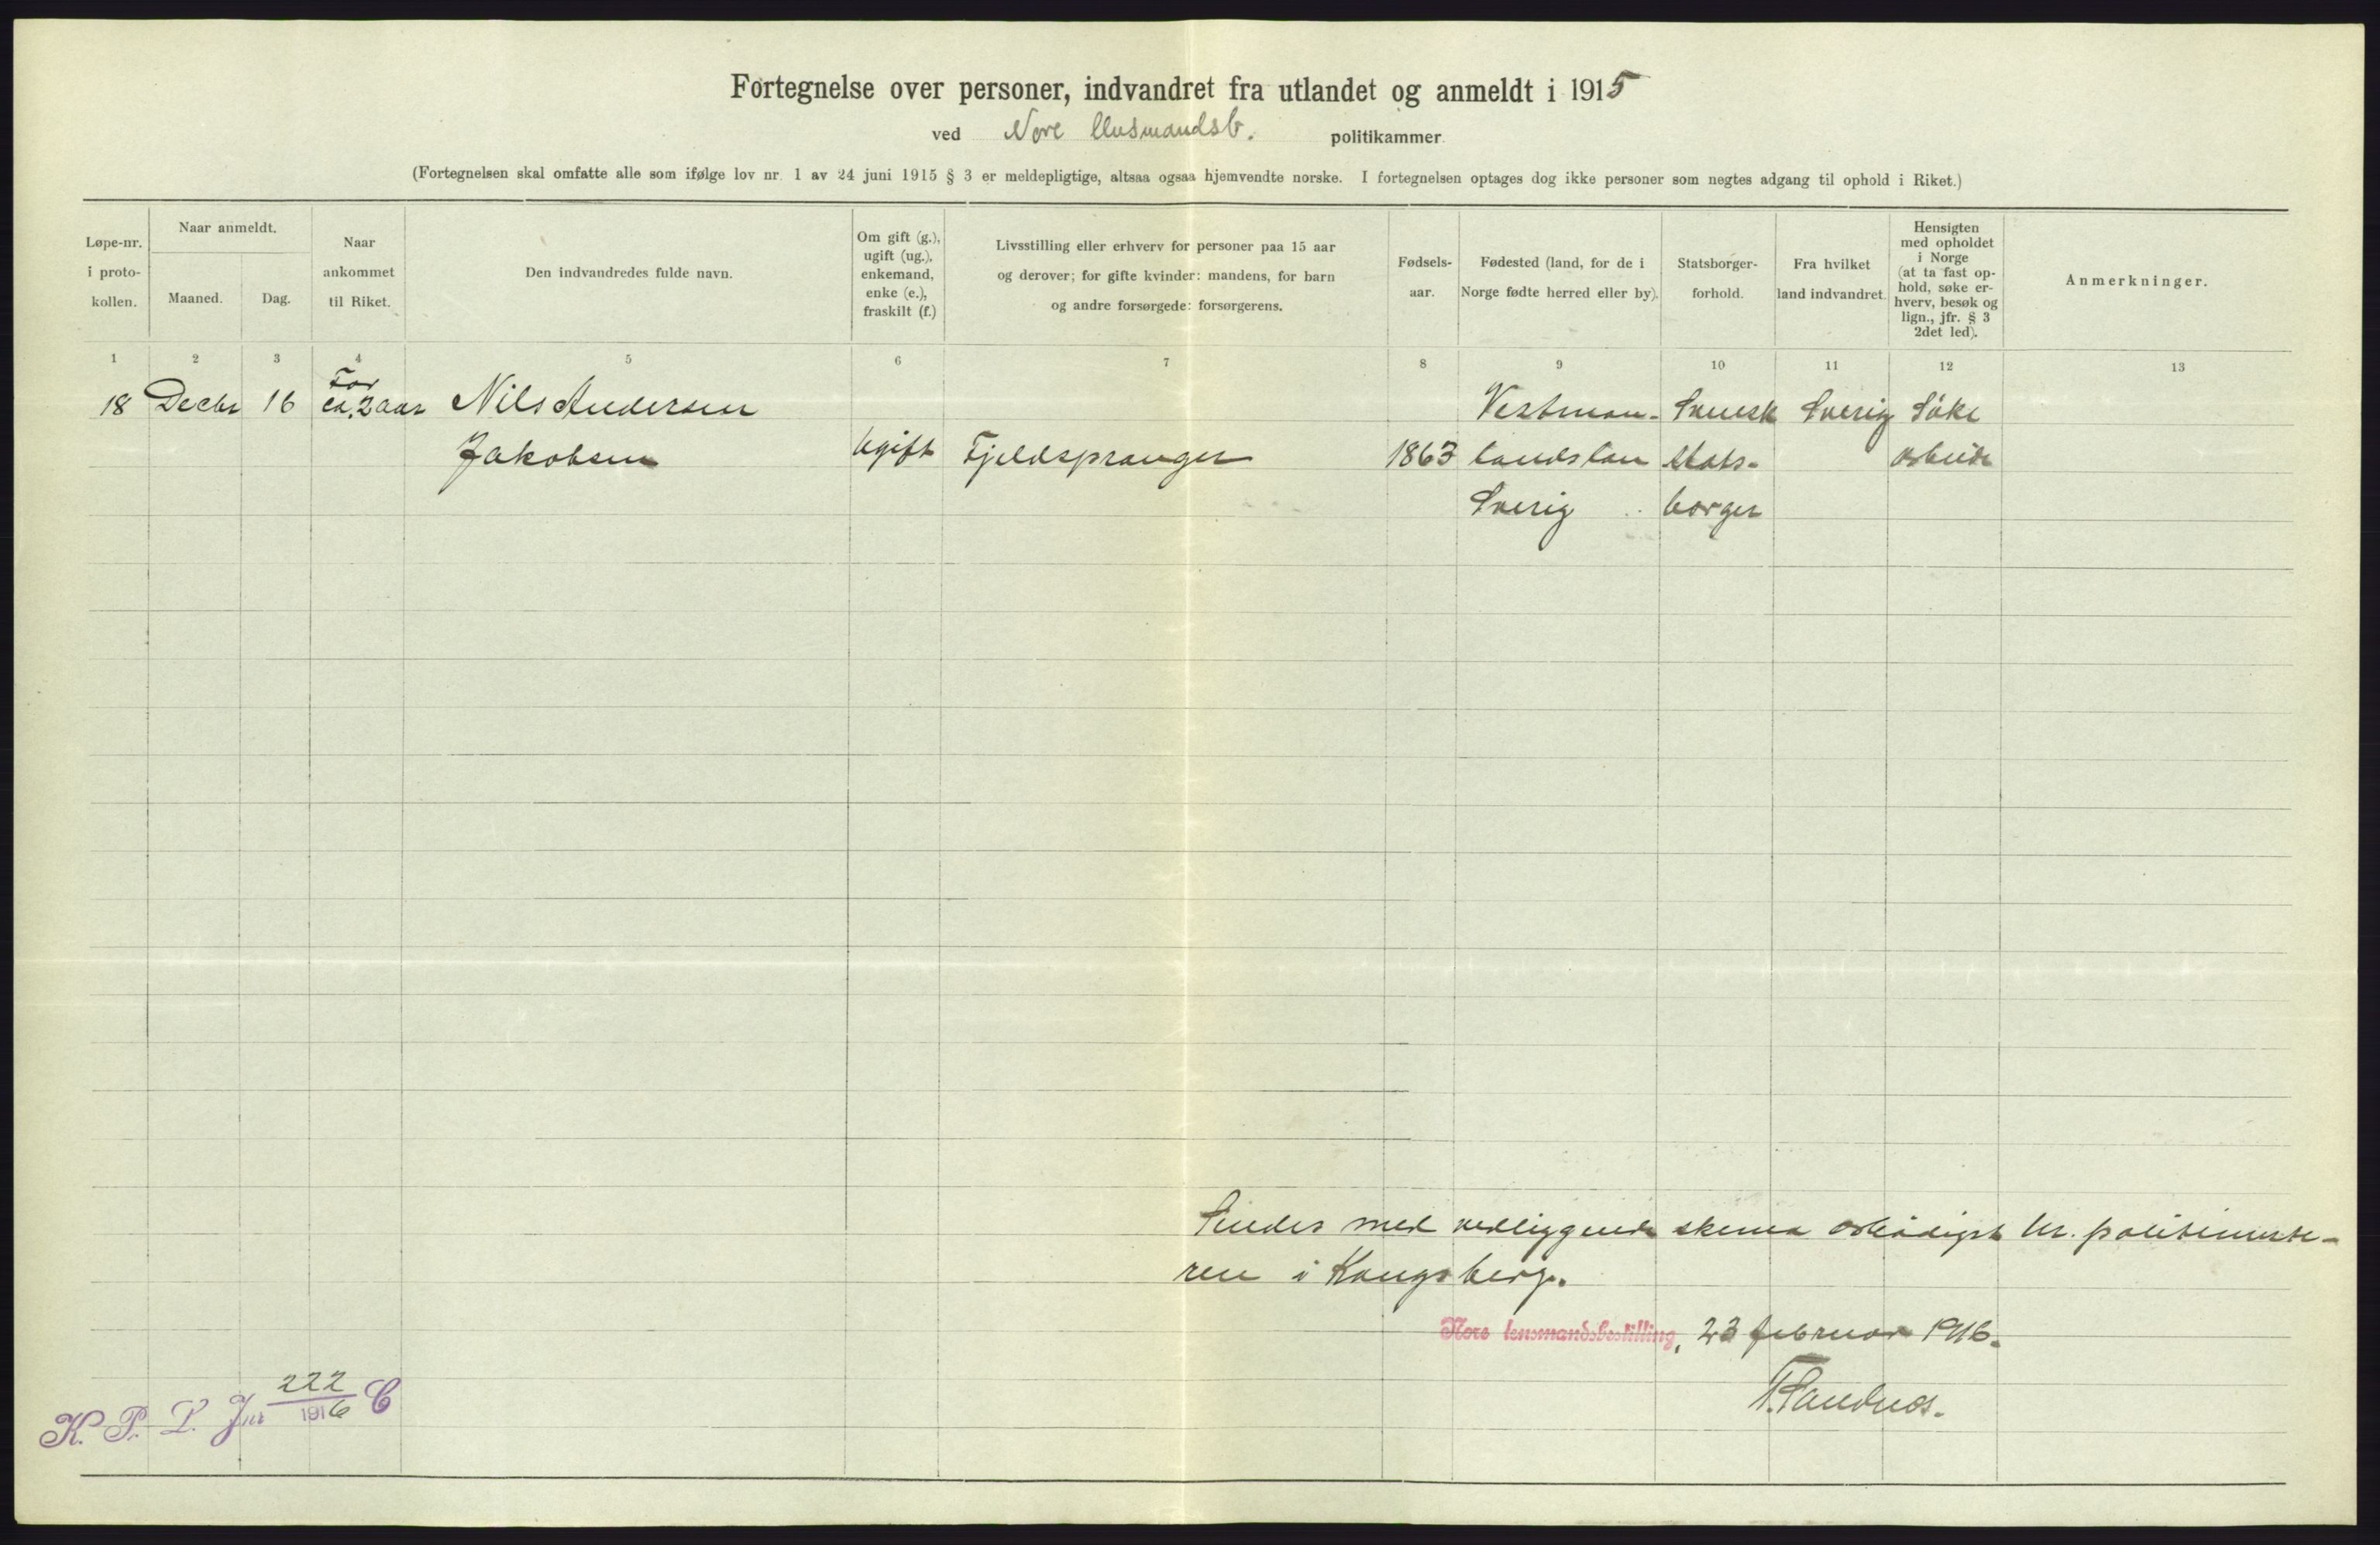 Fortegnelse over personer, indvandret fra utlandet og anmeldt i 1915
ved Nore lensmandsb. politikammer.
(Fortegnelsen skal omfatte alle som ifølge lov nr. 1 av 24 juni 1915 § 3 er meldepligtige, altsaa ogsaa hjemvendte norske. I fortegnelsen optages dog ikke personer som negtes adgang til ophold i Riket.)
Løpe-nr.
i proto-
kollen.
Naar anmeldt.
Maaned.
Dag.
Naar
ankommet
til Riket.
Den indvandredes fulde navn.
Om gift (g.),
ugift (ug.),
enkemand,
enke (e.),
fraskilt (f.)
Livsstilling eller erhverv for personer paa 15 aar
og derover; for gifte kvinder: mandens, for barn
og andre forsørgede: forsørgerens.
Fødsels-
aar.
Fødested (land, for de i
Norge fødte herred eller by).
Statsborger-
forhold.
Fra hvilket
land indvandret.
Hensigten
med opholdet
i Norge
(at ta fast op-
hold, søke er-
hverv, besøk og
lign., jfr. § 3
2det led).
Anmerkninger.
1 2 3 4 5 6 7 8 9 10 11 12 13
For
18 Decbr 16 ca. 2 aar Nils Andersen Vestman- Svensk Sverig Söke
Jakobsen Ugift Fjeldsprænger 1863 landslän stats- arbeide
Sverig borger
Sendes med vedliggende skema ærbödigst hr. politimeste-
ren i Kongsberg.
Nore lensmandsbestilling, 23 februar 1916.
T. Sandnes.
K. P. L. Jnr 222/1916 C